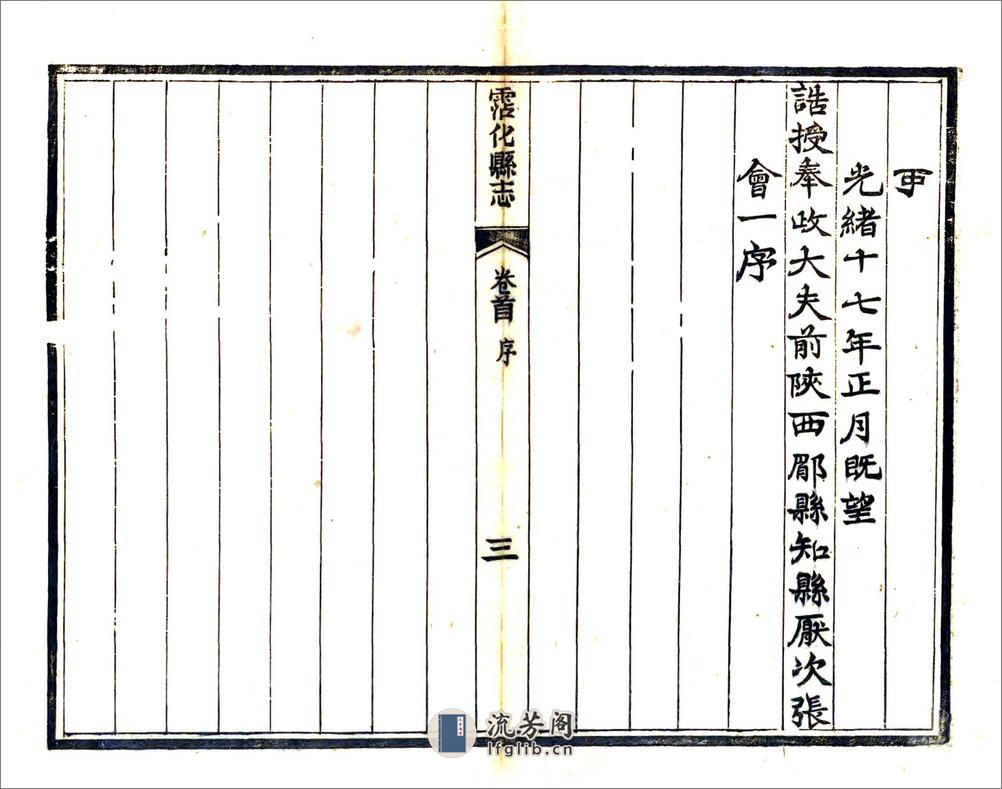 光緒十七年正月既望
誥授奉政大夫前陝西郿縣知縣厭次張
會一序
霑化縣志
卷首
序
三
流芳阁
lfglib.cn